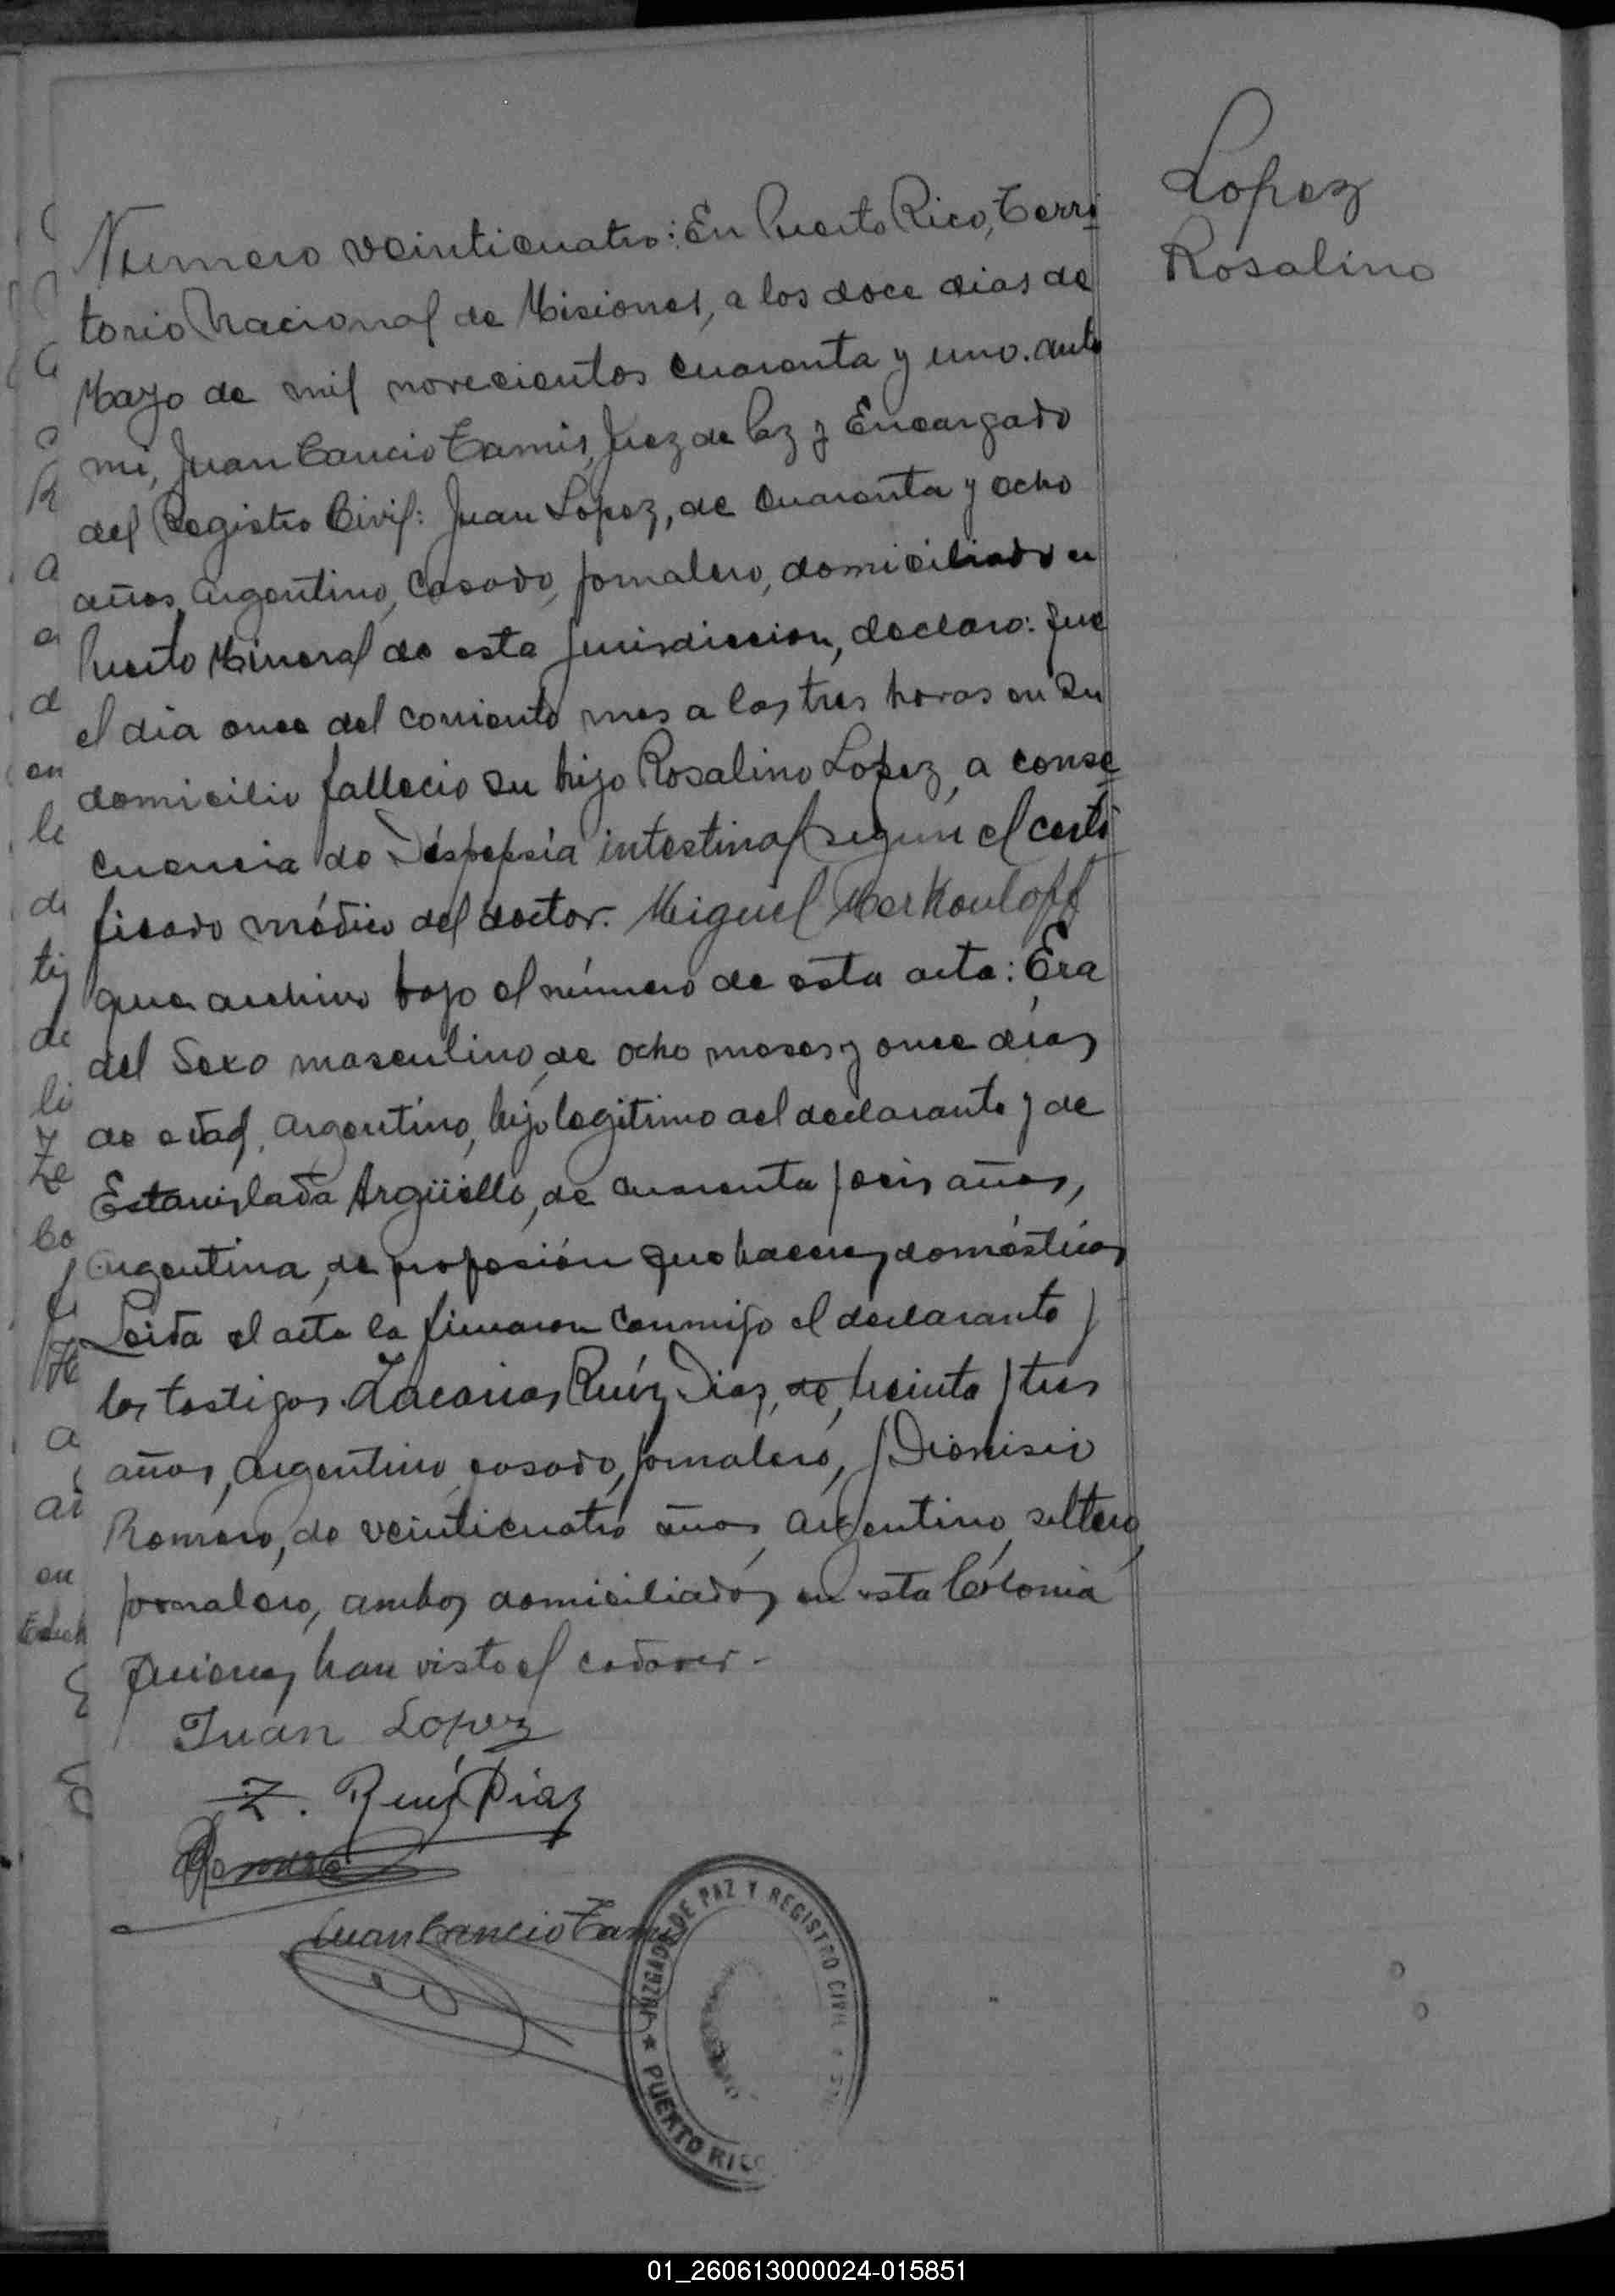 Lopez
Rosalino
Numero veinticuatro: En Puerto Rico, Terri
torio Nacional de Misiones, a los doce dias de
Mayo de mil novecientos cuarenta y uno. ante
mi, Juan Cancio Tamis, Juez de Paz y Encargado
del Registro Civil: Juan Lopez, de cuarenta y ocho
años, argentino, casado, jornalero, domiciliado en
Puerto Mineral de esta jurisdiccion, declaro: Que
el dia once del corriente mes a las tres horas en su
domicilio fallecio su hijo Rosalino Lopez, a conse
cuencia de Dispepsia intestinal según el certi
ficado médico del doctor. Miguel Merkouloff
que archivo bajo el número de esta acta: Era
del sexo masculino, de ocho meses y once días
de edad, argentino, hijo legitimo del declarante y de
Estanislada Argüello, de cuarenta y seis años,
argentina, de profesión quehaceres domésticos
Leida el acta la firmaron conmigo el declarante y
los testigos Zacarias Ruíz Diaz, de, treinta y tres
años, argentino, casado, jornalero, y Dionisio
Romero, de veinticuatro años, argentino, soltero,
jornalero, ambos domiciliados en esta Colonia
quienes han visto el cadaver.-
Juan Lopez
Z. Ruíz Diaz
Romero
Juan Cancio Tamis
JUZGADO DE PAZ Y REGISTRO CIVIL
PUERTO RICO
01_260613000024-015851